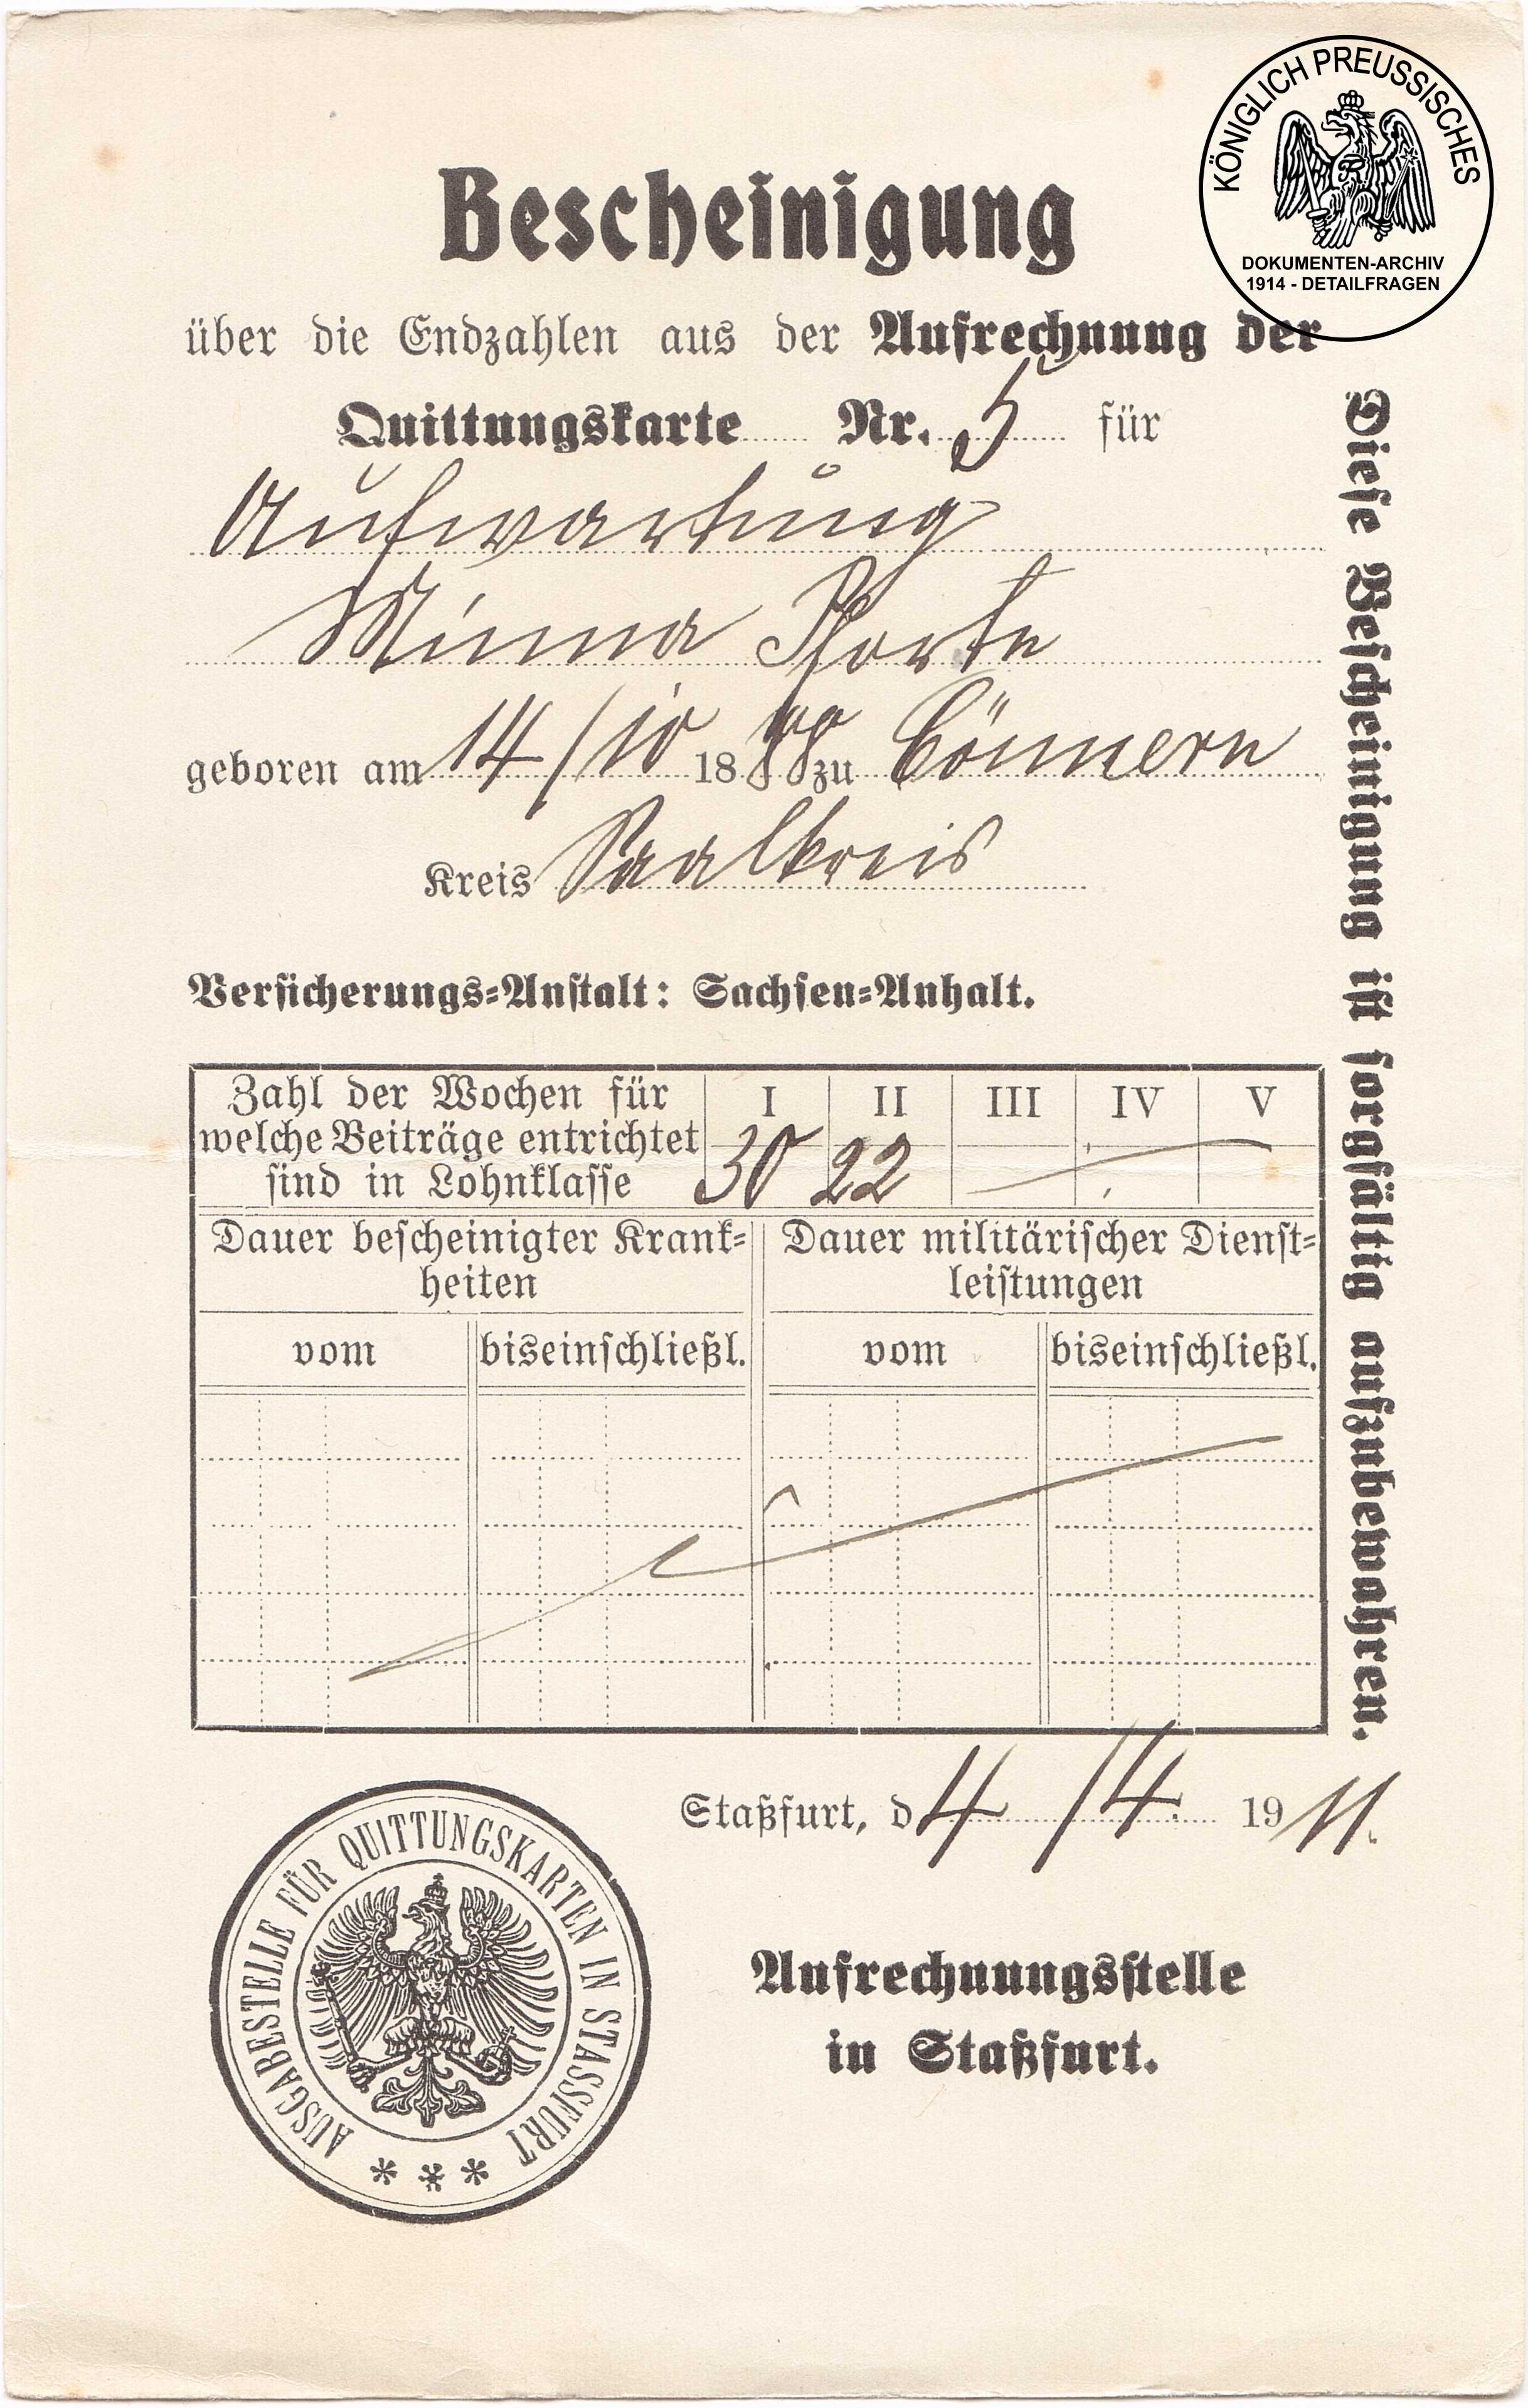 KÖNIGLICH PREUSSISCHES
DOKUMENTEN-ARCHIV
1914 - DETAILFRAGEN
Bescheinigung
über die Endzahlen aus der Aufrechnung der
Quittungskarte Nr. 5 für
Aufwartung
Minna Pforte
geboren am 14/10 1888 zu Cönnern
Kreis Saalkreis
Versicherungs-Anstalt: Sachsen-Anhalt.
Zahl der Wochen für I II III IV V
welche Beiträge entrichtet
sind in Lohnklasse 30 22
Dauer bescheinigter Krank- Dauer militärischer Dienst-
heiten leistungen
vom bis einschließl. vom bis einschließl.
Diese Bescheinigung ist sorgfältig aufzubewahren.
Staßfurt, d 4/4. 1911.
Aufrechnungsstelle
in Staßfurt.
AUSGABESTELLE FÜR QUITTUNGSKARTEN IN STASSFURT